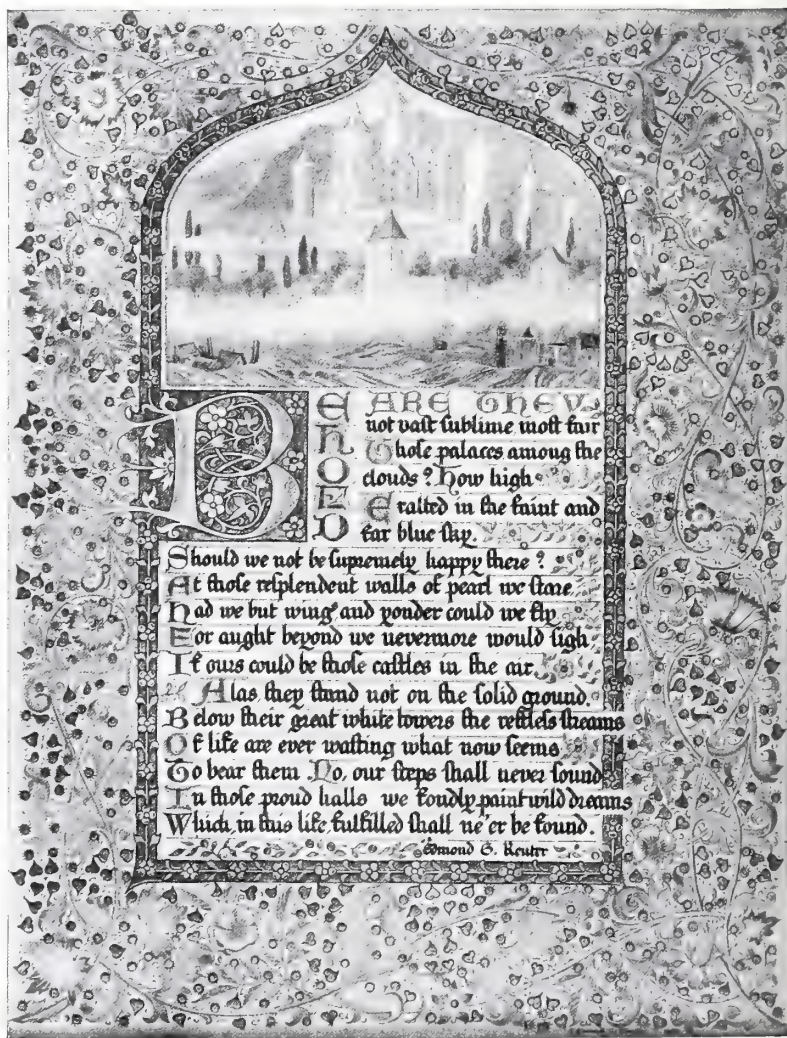 BEHOLD ARE THEY
not vast sublime most fair
Those palaces among the
clouds? How high
Exalted in the faint and
far blue sky.
Should we not be supremely happy there?
At those resplendent walls of pearl we stare
Had we but wings and yonder could we fly
For aught beyond we nevermore would sigh
If ours could be those castles in the air
Alas, they stand not on the solid ground.
Below their great white towers the restless streams
Of life are ever wasting what now seems
To bear them No, our steps shall never sound
In those proud halls we fondly paint wild dreams
Which, in this life, fulfilled shall ne'er be found.
Edmond G. Reuter